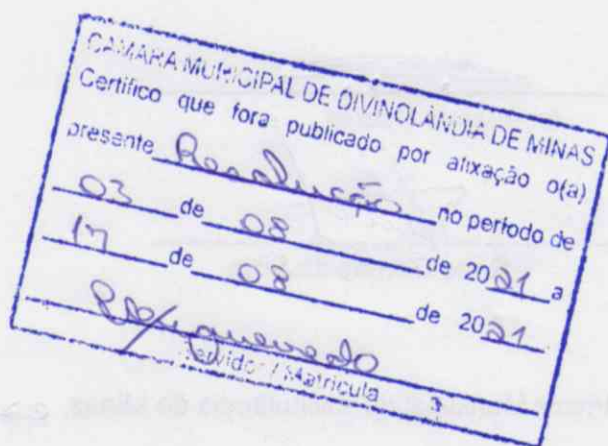 CÂMARA MUNICIPAL DE DIVINOLÂNDIA DE MINAS
Certifico que fora publicado por afixação o(a)
presente Resolução no período de
03 de 08 de 2021 a
17 de 08 de 2021
Servidor / Matrícula